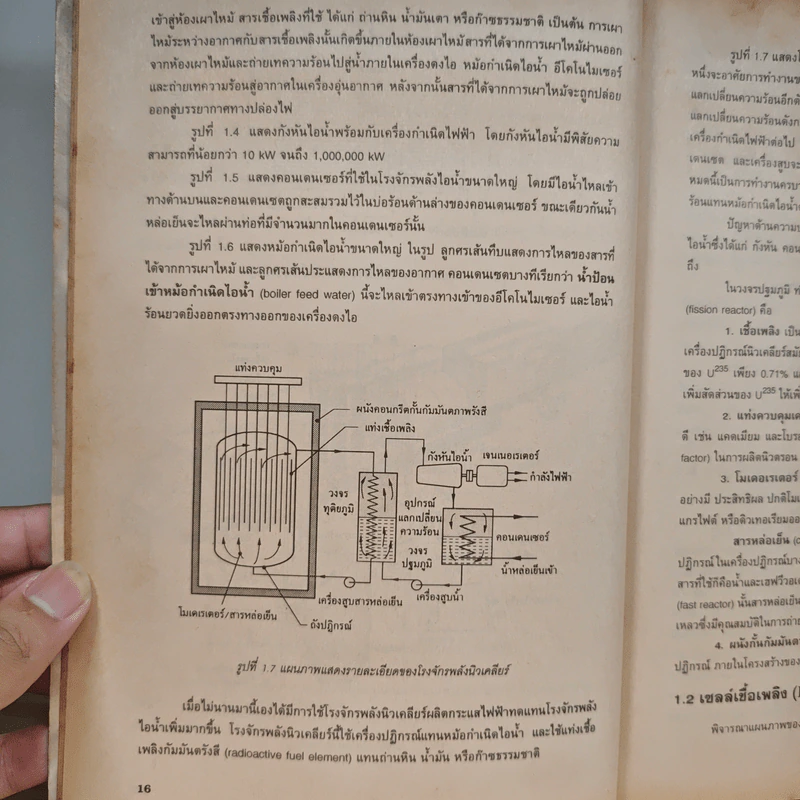 เข้าสู่ห้องเผาไหม้ สารเชื้อเพลิงที่ใช้ ได้แก่ ถ่านหิน น้ำมันเตา หรือก๊าซธรรมชาติ เป็นต้น การเผา
ไหม้ระหว่างอากาศกับสารเชื้อเพลิงนั้นเกิดขึ้นภายในห้องเผาไหม้ สารที่ได้จากการเผาไหม้ผ่านออก
จากห้องเผาไหม้และถ่ายเทความร้อนไปสู่น้ำภายในเครื่องดงไอ หม้อกำเนิดไอน้ำ อีโคโนไมเซอร์
และถ่ายเทความร้อนสู่อากาศในเครื่องอุ่นอากาศ หลังจากนั้นสารที่ได้จากการเผาไหม้จะถูกปล่อย
ออกสู่บรรยากาศทางปล่องไฟ
รูปที่ 1.4 แสดงกังหันไอน้ำพร้อมกับเครื่องกำเนิดไฟฟ้า โดยกังหันไอน้ำมีพิสัยความ
สามารถที่น้อยกว่า 10 kW จนถึง 1,000,000 kW
รูปที่ 1.5 แสดงคอนเดนเซอร์ที่ใช้ในโรงจักรพลังไอน้ำขนาดใหญ่ โดยมีไอน้ำไหลเข้า
ทางด้านบนและคอนเดนเซตถูกสะสมรวมไว้ในบ่อร้อนด้านล่างของคอนเดนเซอร์ ขณะเดียวกันน้ำ
หล่อเย็นจะไหลผ่านท่อที่มีจำนวนมากในคอนเดนเซอร์นั้น
รูปที่ 1.6 แสดงหม้อกำเนิดไอน้ำขนาดใหญ่ ในรูป ลูกศรเส้นทึบแสดงการไหลของสารที่
ได้จากการเผาไหม้ และลูกศรเส้นประแสดงการไหลของอากาศ คอนเดนเซตบางทีเรียกว่า น้ำป้อน
เข้าหม้อกำเนิดไอน้ำ (boiler feed water) นี้จะไหลเข้าตรงทางเข้าของอีโคโนไมเซอร์ และไอน้ำ
ร้อนยวดยิ่งออกตรงทางออกของเครื่องดงไอ
แท่งควบคุม
ผนังคอนกรีตกั้นกัมมันตภาพรังสี
แท่งเชื้อเพลิง
กังหันไอน้ำ เจนเนอเรเตอร์
กำลังไฟฟ้า
วงจร
ทุติยภูมิ
อุปกรณ์
แลกเปลี่ยน
ความร้อน
วงจร
ปฐมภูมิ
คอนเดนเซอร์
น้ำหล่อเย็นเข้า
เครื่องสูบสารหล่อเย็น
เครื่องสูบน้ำ
โมเดเรเตอร์/สารหล่อเย็น
ถังปฏิกรณ์
รูปที่ 1.7 แผนภาพแสดงรายละเอียดของโรงจักรพลังนิวเคลียร์
เมื่อไม่นานมานี้เองได้มีการใช้โรงจักรพลังนิวเคลียร์ผลิตกระแสไฟฟ้าทดแทนโรงจักรพลัง
ไอน้ำเพิ่มมากขึ้น โรงจักรพลังนิวเคลียร์นี้ใช้เครื่องปฏิกรณ์แทนหม้อกำเนิดไอน้ำ และใช้แท่งเชื้อ
เพลิงกัมมันตรังสี (radioactive fuel element) แทนถ่านหิน น้ำมัน หรือก๊าซธรรมชาติ
16
รูปที่ 1.7 แสดง
หนึ่งจะอาศัยการทำงานข
แลกเปลี่ยนความร้อนอีกตั
แลกเปลี่ยนความร้อนดังก
เครื่องกำเนิดไฟฟ้าต่อไป
เดนเซต และเครื่องสูบจะ
หมดนี้เป็นการทำงานครบ
ร้อนแทนหม้อกำเนิดไอน้ำ
ปัญหาด้านความป
ไอน้ำซึ่งได้แก่ กังหัน คอน
ถึง
ในวงจรปฐมภูมิ ท
(fission reactor) คือ
1. เชื้อเพลิง เป็น
เครื่องปฏิกรณ์นิวเคลียร์สมั
ของ U235 เพียง 0.71% แ
เพิ่มสัดส่วนของ U235 ให้เพิ่
2. แท่งควบคุม
ดี เช่น แคดเมียม และโบร
factor) ในการผลิตนิวตรอน
3. โมเดอเรเตอร์
อย่างมี ประสิทธิผล ปกติโม
แกรไฟต์ หรือดิวเทอเรียมออ
สารหล่อเย็น (c
ปฏิกรณ์ในเครื่องปฏิกรณ์บาง
สารที่ใช้ก็คือน้ำและเฮฟวีวอเ
(fast reactor) นั้นสารหล่อเย็น
เหลวซึ่งมีคุณสมบัติในการถ่า
4. ผนังกั้นกัมมันต
ปฏิกรณ์ ภายในโครงสร้างขอ
1.2 เซลล์เชื้อเพลิง (
พิจารณาแผนภาพของ